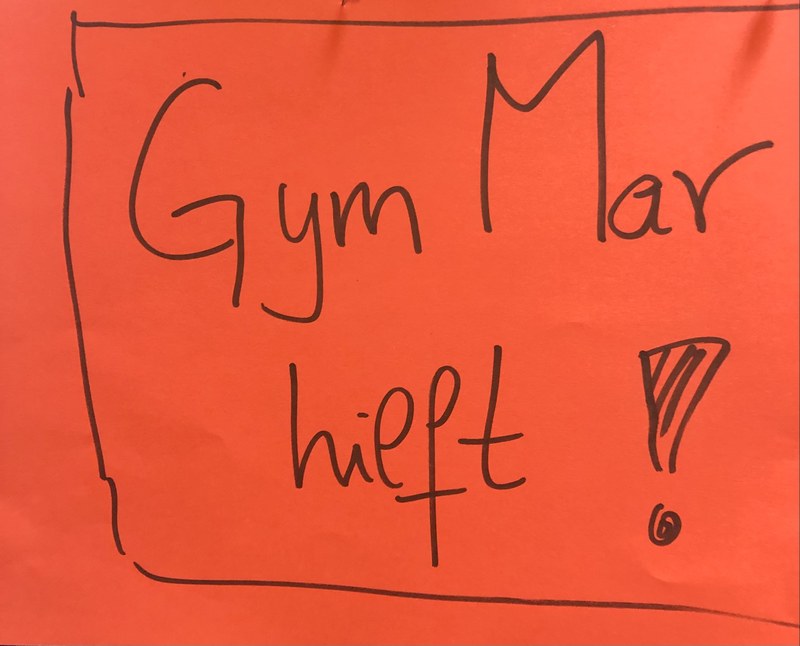 Gym Mar
hilft!